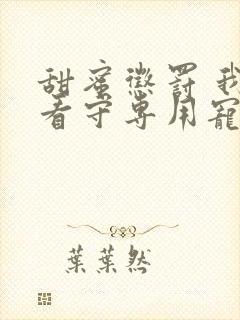 甜蜜懲罰 我
看守專用寵
葉葉然